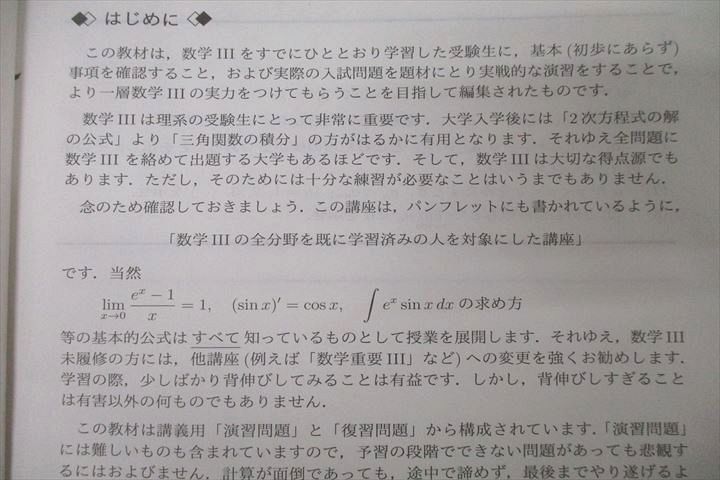 ◆◇ はじめに ◇◆
この教材は，数学 III をすでにひととおり学習した受験生に，基本 (初歩にあらず)
事項を確認すること，および実際の入試問題を題材にとり実戦的な演習をすることで，
より一層数学 III の実力をつけてもらうことを目指して編集されたものです．
数学 III は理系の受験生にとって非常に重要です．大学入学後には「2 次方程式の解
の公式」より「三角関数の積分」の方がはるかに有用となります．それゆえ全問題に
数学 III を絡めて出題する大学もあるほどです．そして，数学 III は大切な得点源でも
あります．ただし，そのためには十分な練習が必要なことはいうまでもありません．
念のため確認しておきましょう．この講座は，パンフレットにも書かれているように，
「数学 III の全分野を既に学習済みの人を対象にした講座」
です．当然
lim_{x→0} (e^x − 1)/x = 1, (sin x)′ = cos x, ∫ e^x sin x dx の求め方
等の基本的公式は すべて 知っているものとして授業を展開します．それゆえ，数学 III
未履修の方には，他講座 (例えば「数学重要 III」など) への変更を強くお勧めします．
学習の際，少しばかり背伸びしてみることは有益です．しかし，背伸びしすぎること
は有害以外の何ものでもありません．
この教材は講義用「演習問題」と「復習問題」から構成されています．「演習問題」
には難しいものも含まれていますので，予習の段階でできない問題があっても悲観す
るにはおよびません．計算が面倒であっても，途中で諦めず，最後までやり遂げるよ